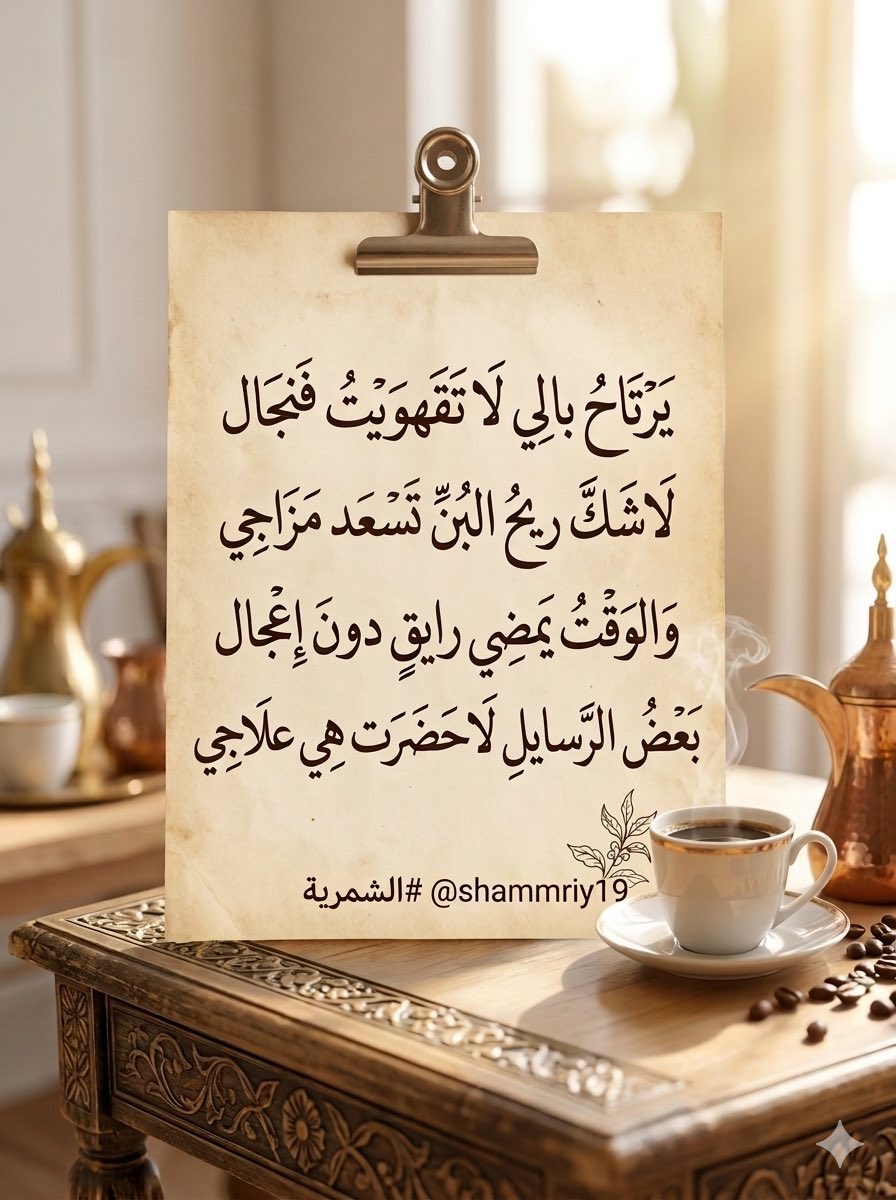 يَرْتَاحُ بالِي لَا تَقَهوَيْتُ فَنجَال
لَاشَكَّ ريحُ البُنِّ تَسْعَد مَزَاجِي
وَالوَقْتُ يَمضِي رايقٍ دونَ إِعْجال
بَعْضُ الرَّسايلِ لَاحَضَرَت هِي علَاجِي
#الشمرية @shammriy19